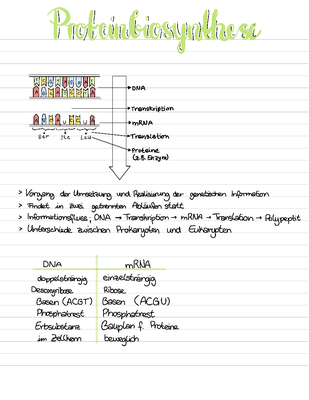 Proteinbiosynthese
DNA
Transkription
mRNA
Ser Ile Leu
Translation
Proteine
(z.B. Enzym)
> Vorgang der Umsetzung und Realisierung der genetischen Information
> Findet in zwei getrennten Abläufen statt
> Informationsfluss: DNA → Transkription → mRNA → Translation → Polypeptit
> Unterschiede zwischen Prokaryoten und Eukaryoten
DNA mRNA
doppelsträngig einzelsträngig
Desoxyribose Ribose
Basen (ACGT) Basen (ACGU)
Phosphatrest Phosphatrest
Erbsubstanz Bauplan f. Proteine
im Zellkern beweglich